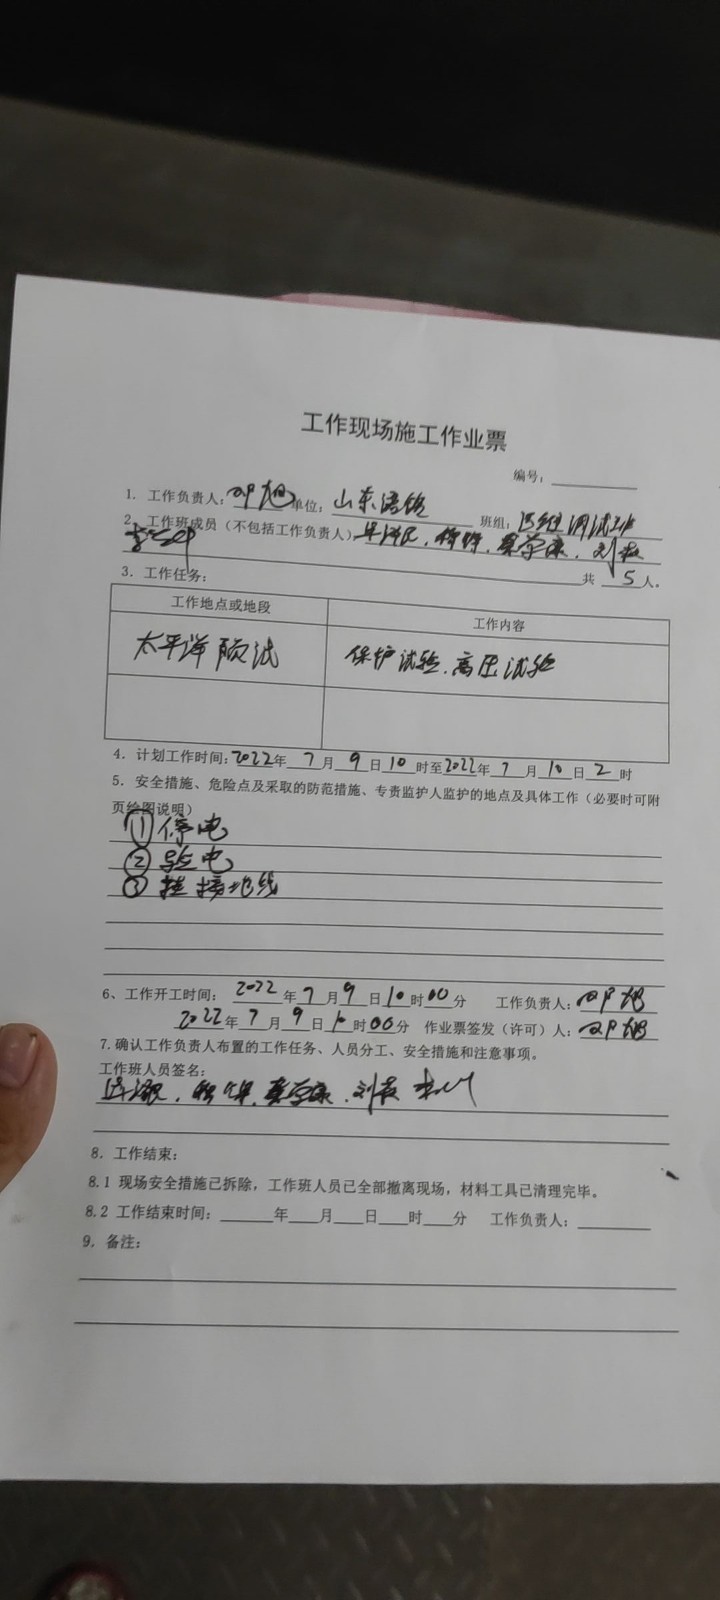 工作现场施工作业票
编号：
1. 工作负责人： 旭 单位：山东 班组： 调试班
2. 工作班成员（不包括工作负责人） 刘
共 5 人。
3. 工作任务：
工作地点或地段 工作内容
太平洋 试 保护试验、高压试验
4. 计划工作时间：2022年 7 月 9 日 10 时至2022年 7 月 10 日 2 时
5. 安全措施、危险点及采取的防范措施、专责监护人监护的地点及具体工作（必要时可附
页绘图说明）
① 停电
② 验电
③ 挂接地线
6、工作开工时间： 2022 年 7 月 9 日 10 时 00 分 工作负责人： 旭
2022 年 7 月 9 日 时 00 分 作业票签发（许可）人： 旭
7.确认工作负责人布置的工作任务、人员分工、安全措施和注意事项。
工作班人员签名：
刘
8. 工作结束：
8.1 现场安全措施已拆除，工作班人员已全部撤离现场，材料工具已清理完毕。
8.2 工作结束时间： 年 月 日 时 分 工作负责人：
9. 备注：